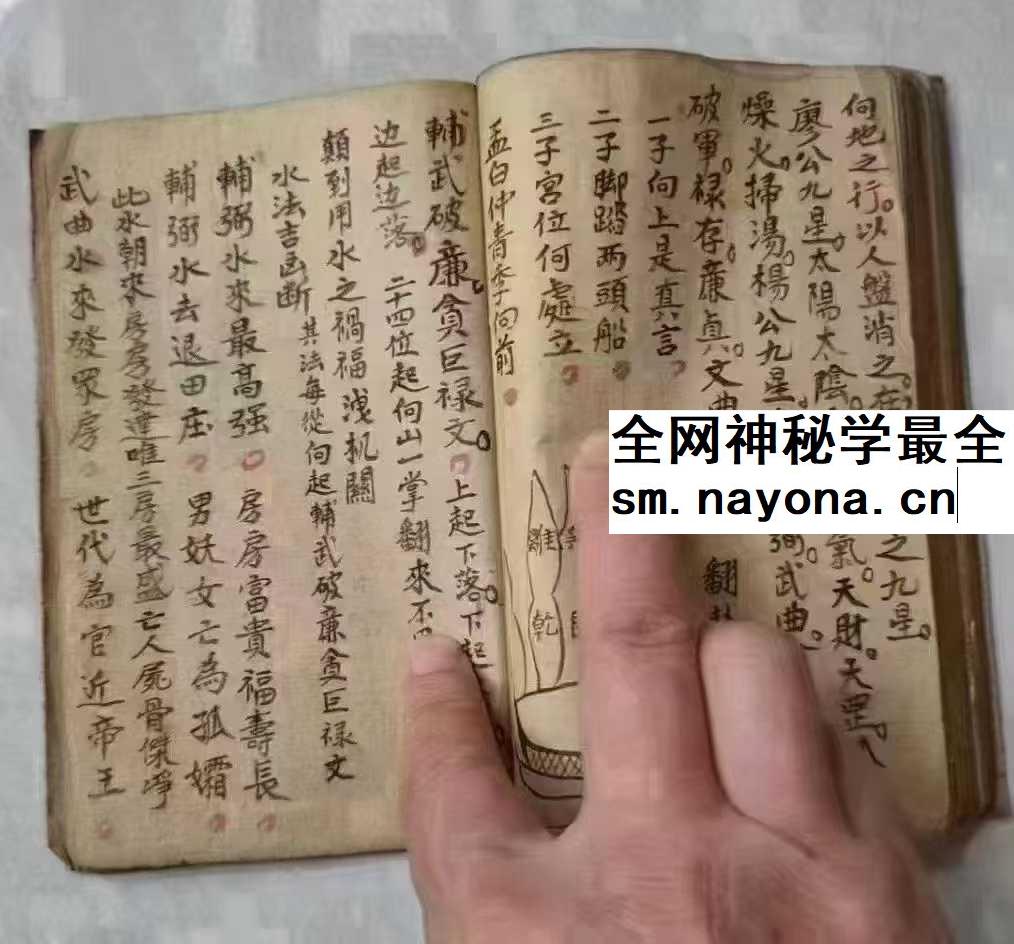 何地之行。以人盤消之。在
之九星。
廖公九星。太陽太陰
氣。天財。天罡。
燥火。掃湯。楊公九星
武曲。
破軍。禄存。廉貞。文曲
翻
一子向上是真言
二子脚踏两頭船
三子宮位何處立
孟白仲青季向前
離
乾
輔武破廉。貪巨禄文。上起下落。下起
边起边落。二十四位起向山一掌翻來不
顛到用水之禍福洩机關
水法吉凶断
其法每從向起輔武破廉貪巨禄文
輔弼水來最高强 房房富貴福壽長
輔弼水去退田庄 男妖女亡為孤孀
此水朝來房房發達唯三房最盛亡人屍骨傑净
武曲水來發眾房 世代為官近帝王
全网神秘学最全
sm.nayona.cn